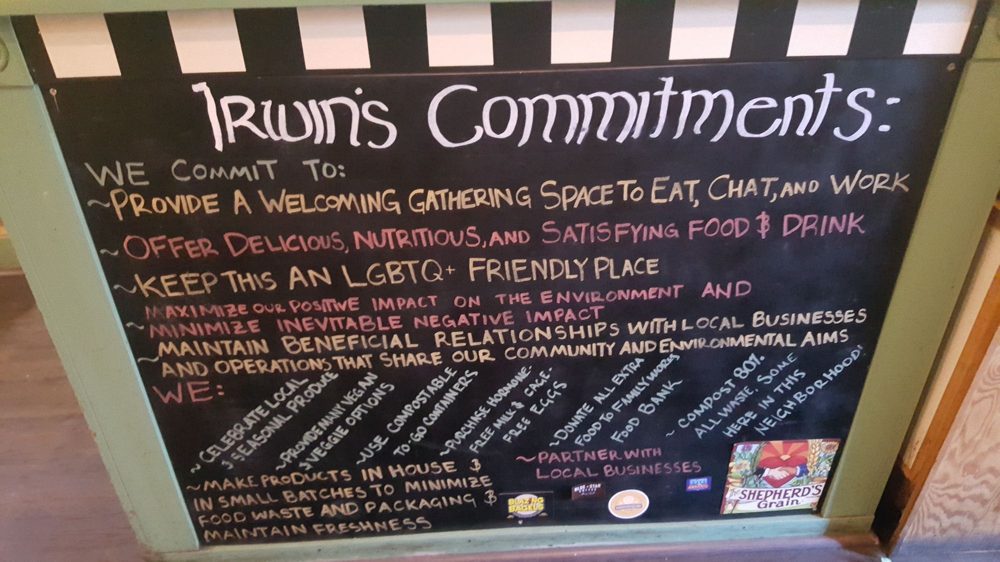 IRWIN'S COMMITMENTS:
WE COMMIT TO:
~PROVIDE A WELCOMING GATHERING SPACE TO EAT, CHAT, AND WORK
~OFFER DELICIOUS, NUTRITIOUS, AND SATISFYING FOOD & DRINK
~KEEP THIS AN LGBTQ+ FRIENDLY PLACE
~MAXIMIZE OUR POSITIVE IMPACT ON THE ENVIRONMENT AND
MINIMIZE INEVITABLE NEGATIVE IMPACT
~MAINTAIN BENEFICIAL RELATIONSHIPS WITH LOCAL BUSINESSES
AND OPERATIONS THAT SHARE OUR COMMUNITY AND ENVIRONMENTAL AIMS
WE:
~CELEBRATE LOCAL
& SEASONAL PRODUCE
~PROVIDE MANY VEGAN
& VEGGIE OPTIONS
~USE COMPOSTABLE
TO-GO CONTAINERS
~PURCHASE HORMONE-
FREE MILK & CAGE-
FREE EGGS
~DONATE ALL EXTRA
FOOD TO FAMILY WORKS
FOOD BANK
~COMPOST 80%
ALL WASTE. SOME
HERE IN THIS
NEIGHBORHOOD.
~MAKE PRODUCTS IN HOUSE &
IN SMALL BATCHES TO MINIMIZE
FOOD WASTE AND PACKAGING &
MAINTAIN FRESHNESS
~PARTNER WITH
LOCAL BUSINESSES
BLAZING
BAGELS
BLUE STAR
SHEPHERD'S
Grain